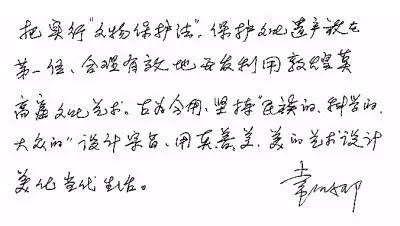 把实行“文物保护法”，保护文化遗产放在
第一位、合理有效地开发利用敦煌莫
高窟文化艺术。古为今用、坚持“民族的、科学的、
大众的”设计宗旨、用真善美、美的艺术设计
美化当代生活。
常沙娜